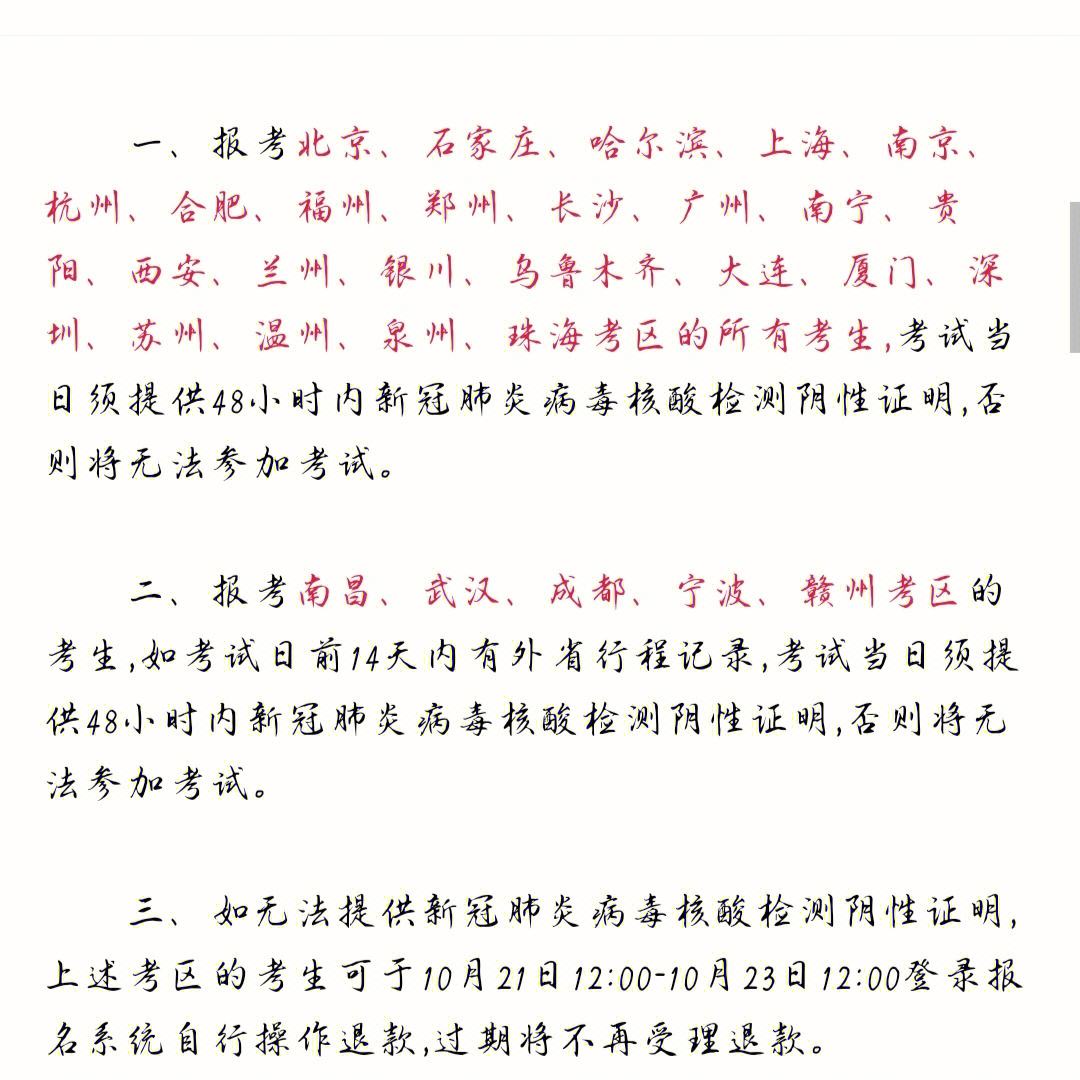 一、报考北京、石家庄、哈尔滨、上海、南京、
杭州、合肥、福州、郑州、长沙、广州、南宁、贵
阳、西安、兰州、银川、乌鲁木齐、大连、厦门、深
圳、苏州、温州、泉州、珠海考区的所有考生,考试当
日须提供48小时内新冠肺炎病毒核酸检测阴性证明,否
则将无法参加考试。
二、报考南昌、武汉、成都、宁波、赣州考区的
考生,如考试日前14天内有外省行程记录,考试当日须提
供48小时内新冠肺炎病毒核酸检测阴性证明,否则将无
法参加考试。
三、如无法提供新冠肺炎病毒核酸检测阴性证明,
上述考区的考生可于10月21日12:00-10月23日12:00登录报
名系统自行操作退款,过期将不再受理退款。